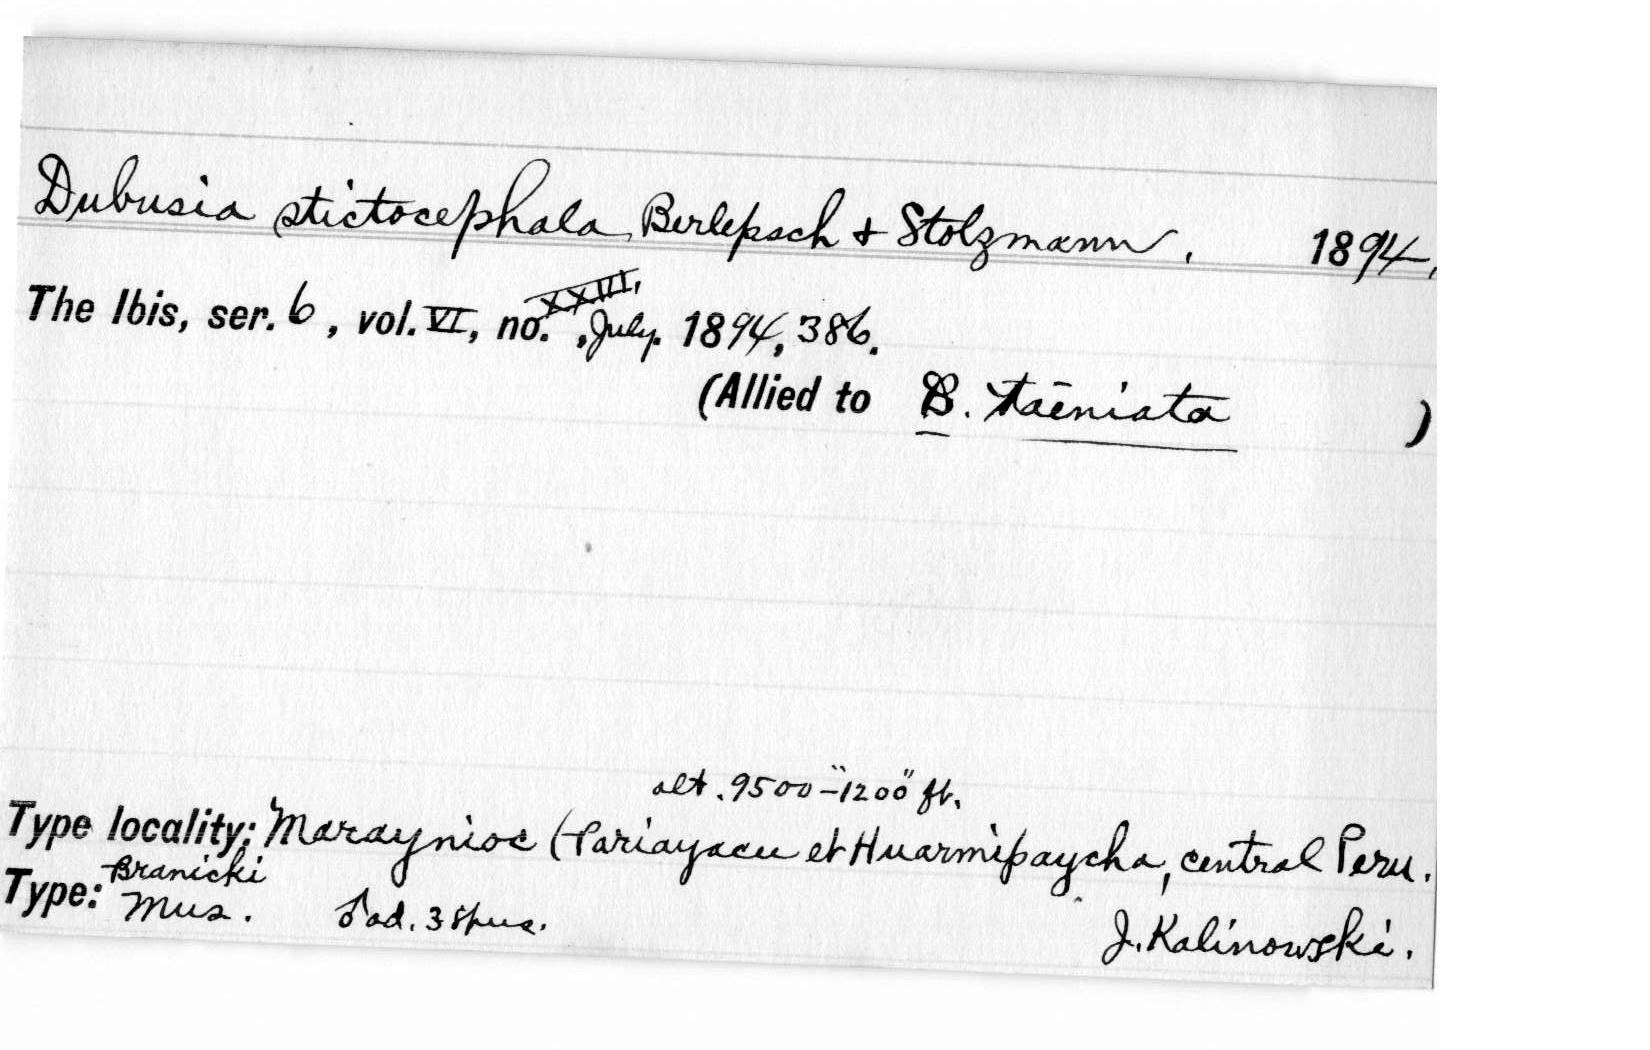 Dubusia stictocephala Berlepsch & Stolzmann, 1894,
The Ibis, ser. 6, vol. VI, no. XXIII, July. 1894, 386.
(Allied to D. taeniata )
alt. 9500–1200 ft.
Type locality: Maraynioc (Pariayacu et Huarmipaycha, central Peru.
Type: Branicki Mus. ♂ ad. 3 spns. J. Kalinowski.